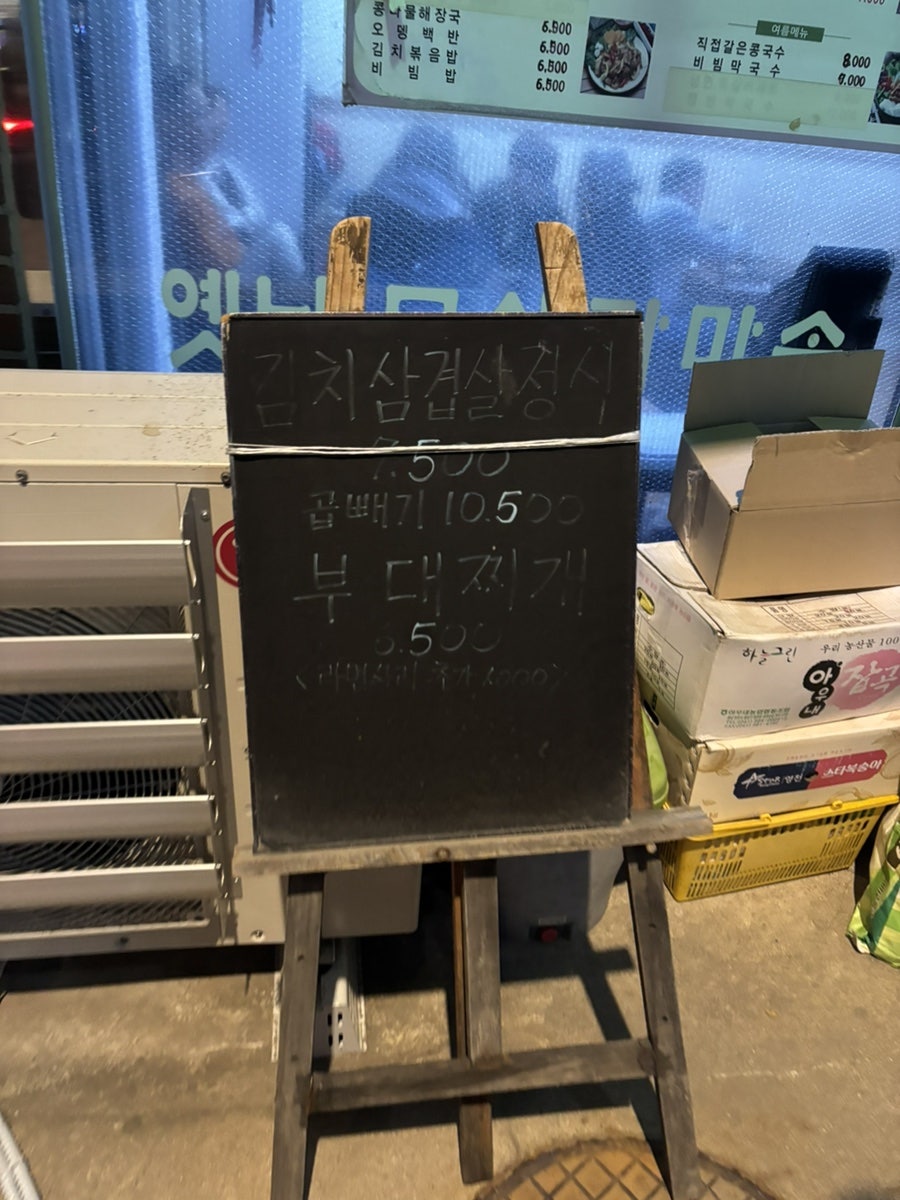 콩나물해장국 6.500
오뎅백반 6.500
김치볶음밥 6.500
비빔밥 6.500
여름메뉴
직접갈은콩국수 8.000
비빔막국수 7.000
김치삼겹살정식
7.500
곱빼기 10.500
부대찌개
6.500
(라면사리 추가 1.000)
하늘그린
우리 농산물 100
아우내
잡곡
영천
스타복숭아